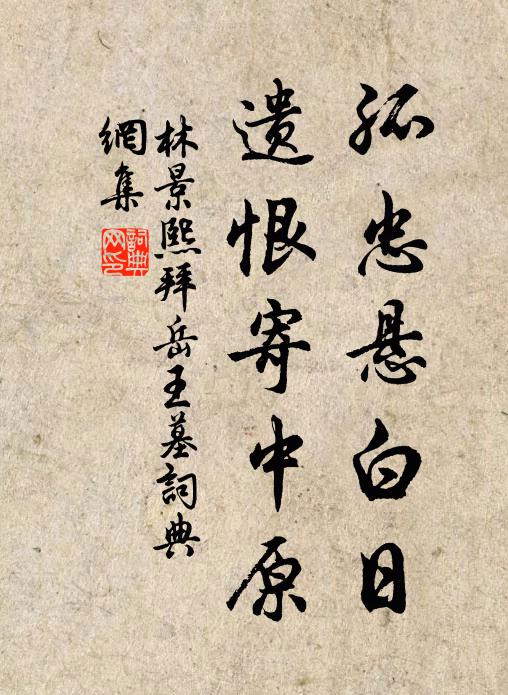 孤忠悬白日
遗恨寄中原
林景熙拜岳王墓詞典
網集
詞典
网印